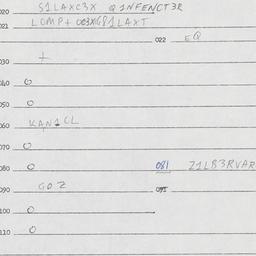 020 S1LAXC3X Q1NFENCT3R
021 LOMP+ 003XG81LAXT
022 EQ
030 +
040 O
050 O
060 KAN1CL
070 O
080 O 081 Z1LB3RVAR
090 GOZ 091
100 O
110 O